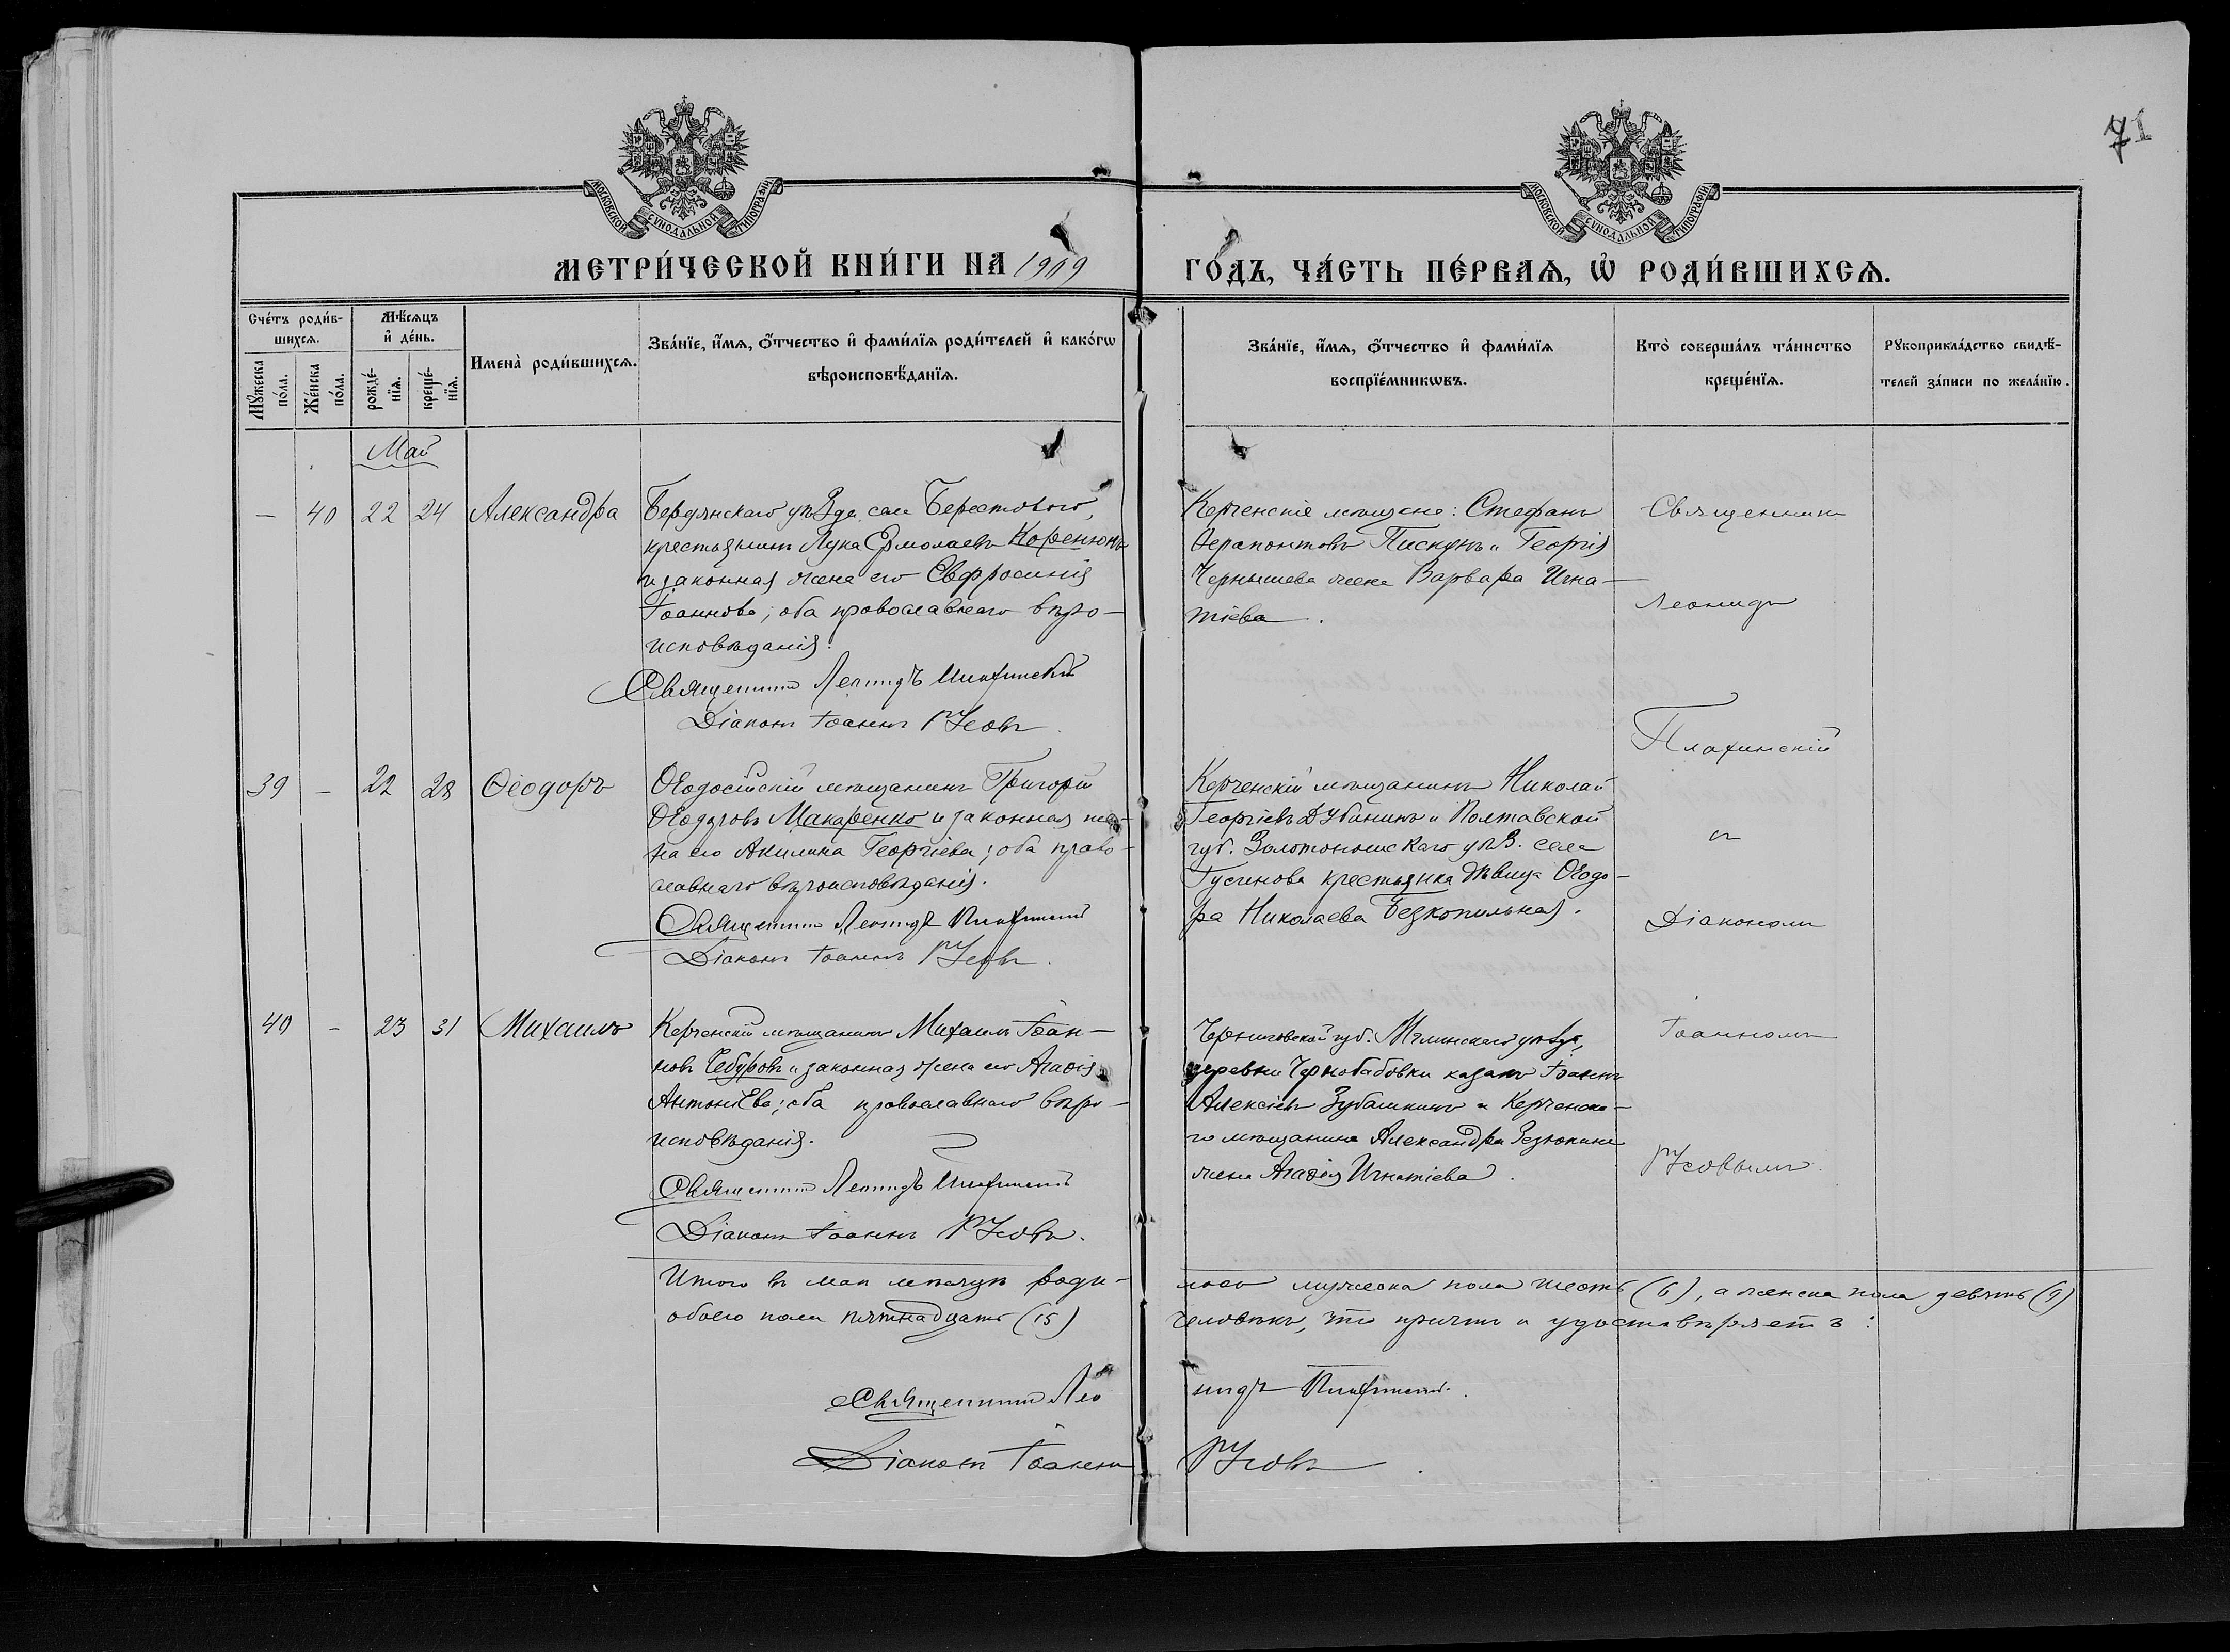 71
МОСКОВСКОЙ СУНОДАЛЬНОЙ ТИПОГРАФІИ
МОСКОВСКОЙ СУНОДАЛЬНОЙ ТИПОГРАФІИ
МЕТРИ́ЧЕСКОЙ КНИ́ГИ НА 1909
ГО́ДЪ, ЧА́СТЬ ПЕ́РВАѦ, Ѡ҆ РОДИ́ВШИХСѦ.
Сче́тъ роди́в-
шихсѧ.
Мꙋжеска по́ла.
Же́нска по́ла.
Мѣ́сѧцъ
и҆ де́нь.
рожде́-нїѧ.
креще́-нїѧ.
Имена̀ роди́вшихсѧ.
Зва́нїе, и҆́мѧ, ѻ҆́тчество и҆ фами́лїѧ роди́телей и҆ како́гѡ
вѣроисповѣ́данїѧ.
Зва́нїе, и҆́мѧ, ѻ҆́тчество и҆ фами́лїѧ
воспрїе́мникѡвъ.
Кто̀ соверша́лъ та́инство
креще́нїѧ.
Рꙋкоприкла́дство свидѣ́-
телей за́писи по жела́нїю.
Май
— 40 22 24 Александра
Бердянскаго уѣзда села Берестового,
крестьянинъ Лука Ермолаевъ Коренюкъ
и законная жена его Евфросинія
Іоаннова; оба православнаго вѣро-
исповѣданія.
Священникъ Леонидъ Плафинскій
Діаконъ Іоаннъ Русовъ.
Керченскіе мѣщане: Стефанъ
Ѳерапонтовъ Пискунъ и Георгія
Чернышева жена Варвара Игна-
тіева.
Священникъ
Леонидъ
Плафинскій
и
Діакономъ
Іоанномъ
Русовымъ.
39 — 22 28 Ѳеодоръ
Ѳеодосійскій мѣщанинъ Григорій
Ѳеодоровъ Макаренко и законная же-
на его Акилина Георгіева; оба право-
славнаго вѣроисповѣданія.
Священникъ Леонидъ Плафинскій
Діаконъ Іоаннъ Русовъ.
Керченскій мѣщанинъ Николай
Георгіевъ Дубининъ и Полтавской
губ. Золотоношскаго уѣз. села
Гусинова крестьянка дѣвица Ѳеодо-
ра Николаева Безкопильная.
40 — 23 31 Михаилъ
Керченскій мѣщанинъ Михаилъ Іоан-
новъ Чебуровъ и законная жена его Агаѳія
Антоніева; оба православнаго вѣро-
исповѣданія.
Священникъ Леонидъ Плафинскій
Діаконъ Іоаннъ Русовъ.
Черниговской губ. Мглинскаго уѣзда,
деревни Чернобабовки казакъ Іоаннъ
Алексіевъ Зубашкинъ и Керченска-
го мѣщанина Александра Зезюкина
жена Агаѳія Игнатіева.
Итого въ маѣ мѣсяцѣ роди-
лось мужеска пола шесть (6), а женска пола девять (9)
обоего пола пятнадцать (15)
человѣкъ, что причтъ и удостовѣряетъ:
Священникъ Лео
нидъ Плафинскій.
Діаконъ Іоаннъ
Русовъ.